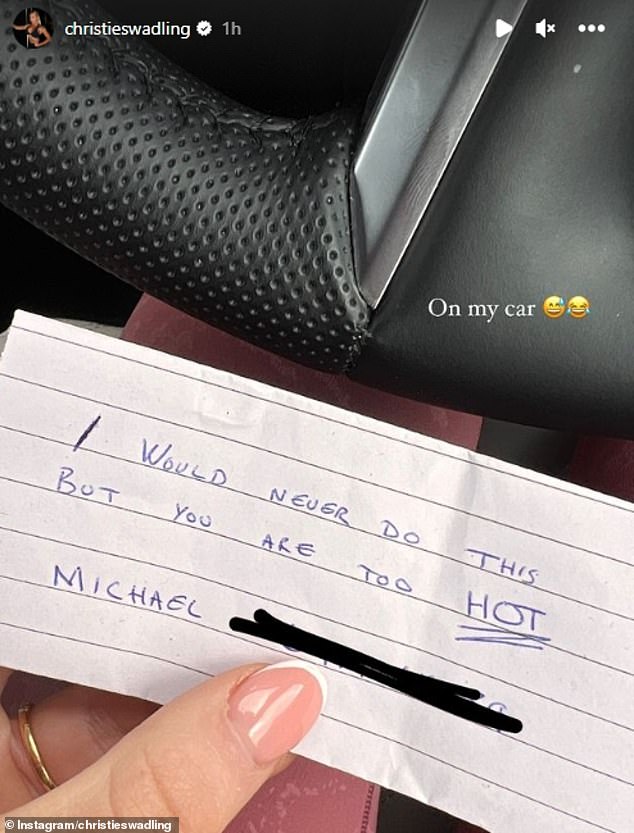 christieswadling 1h
On my car 😅😂
I WOULD NEVER DO THIS
BUT YOU ARE TOO HOT
MICHAEL
© Instagram/christieswadling